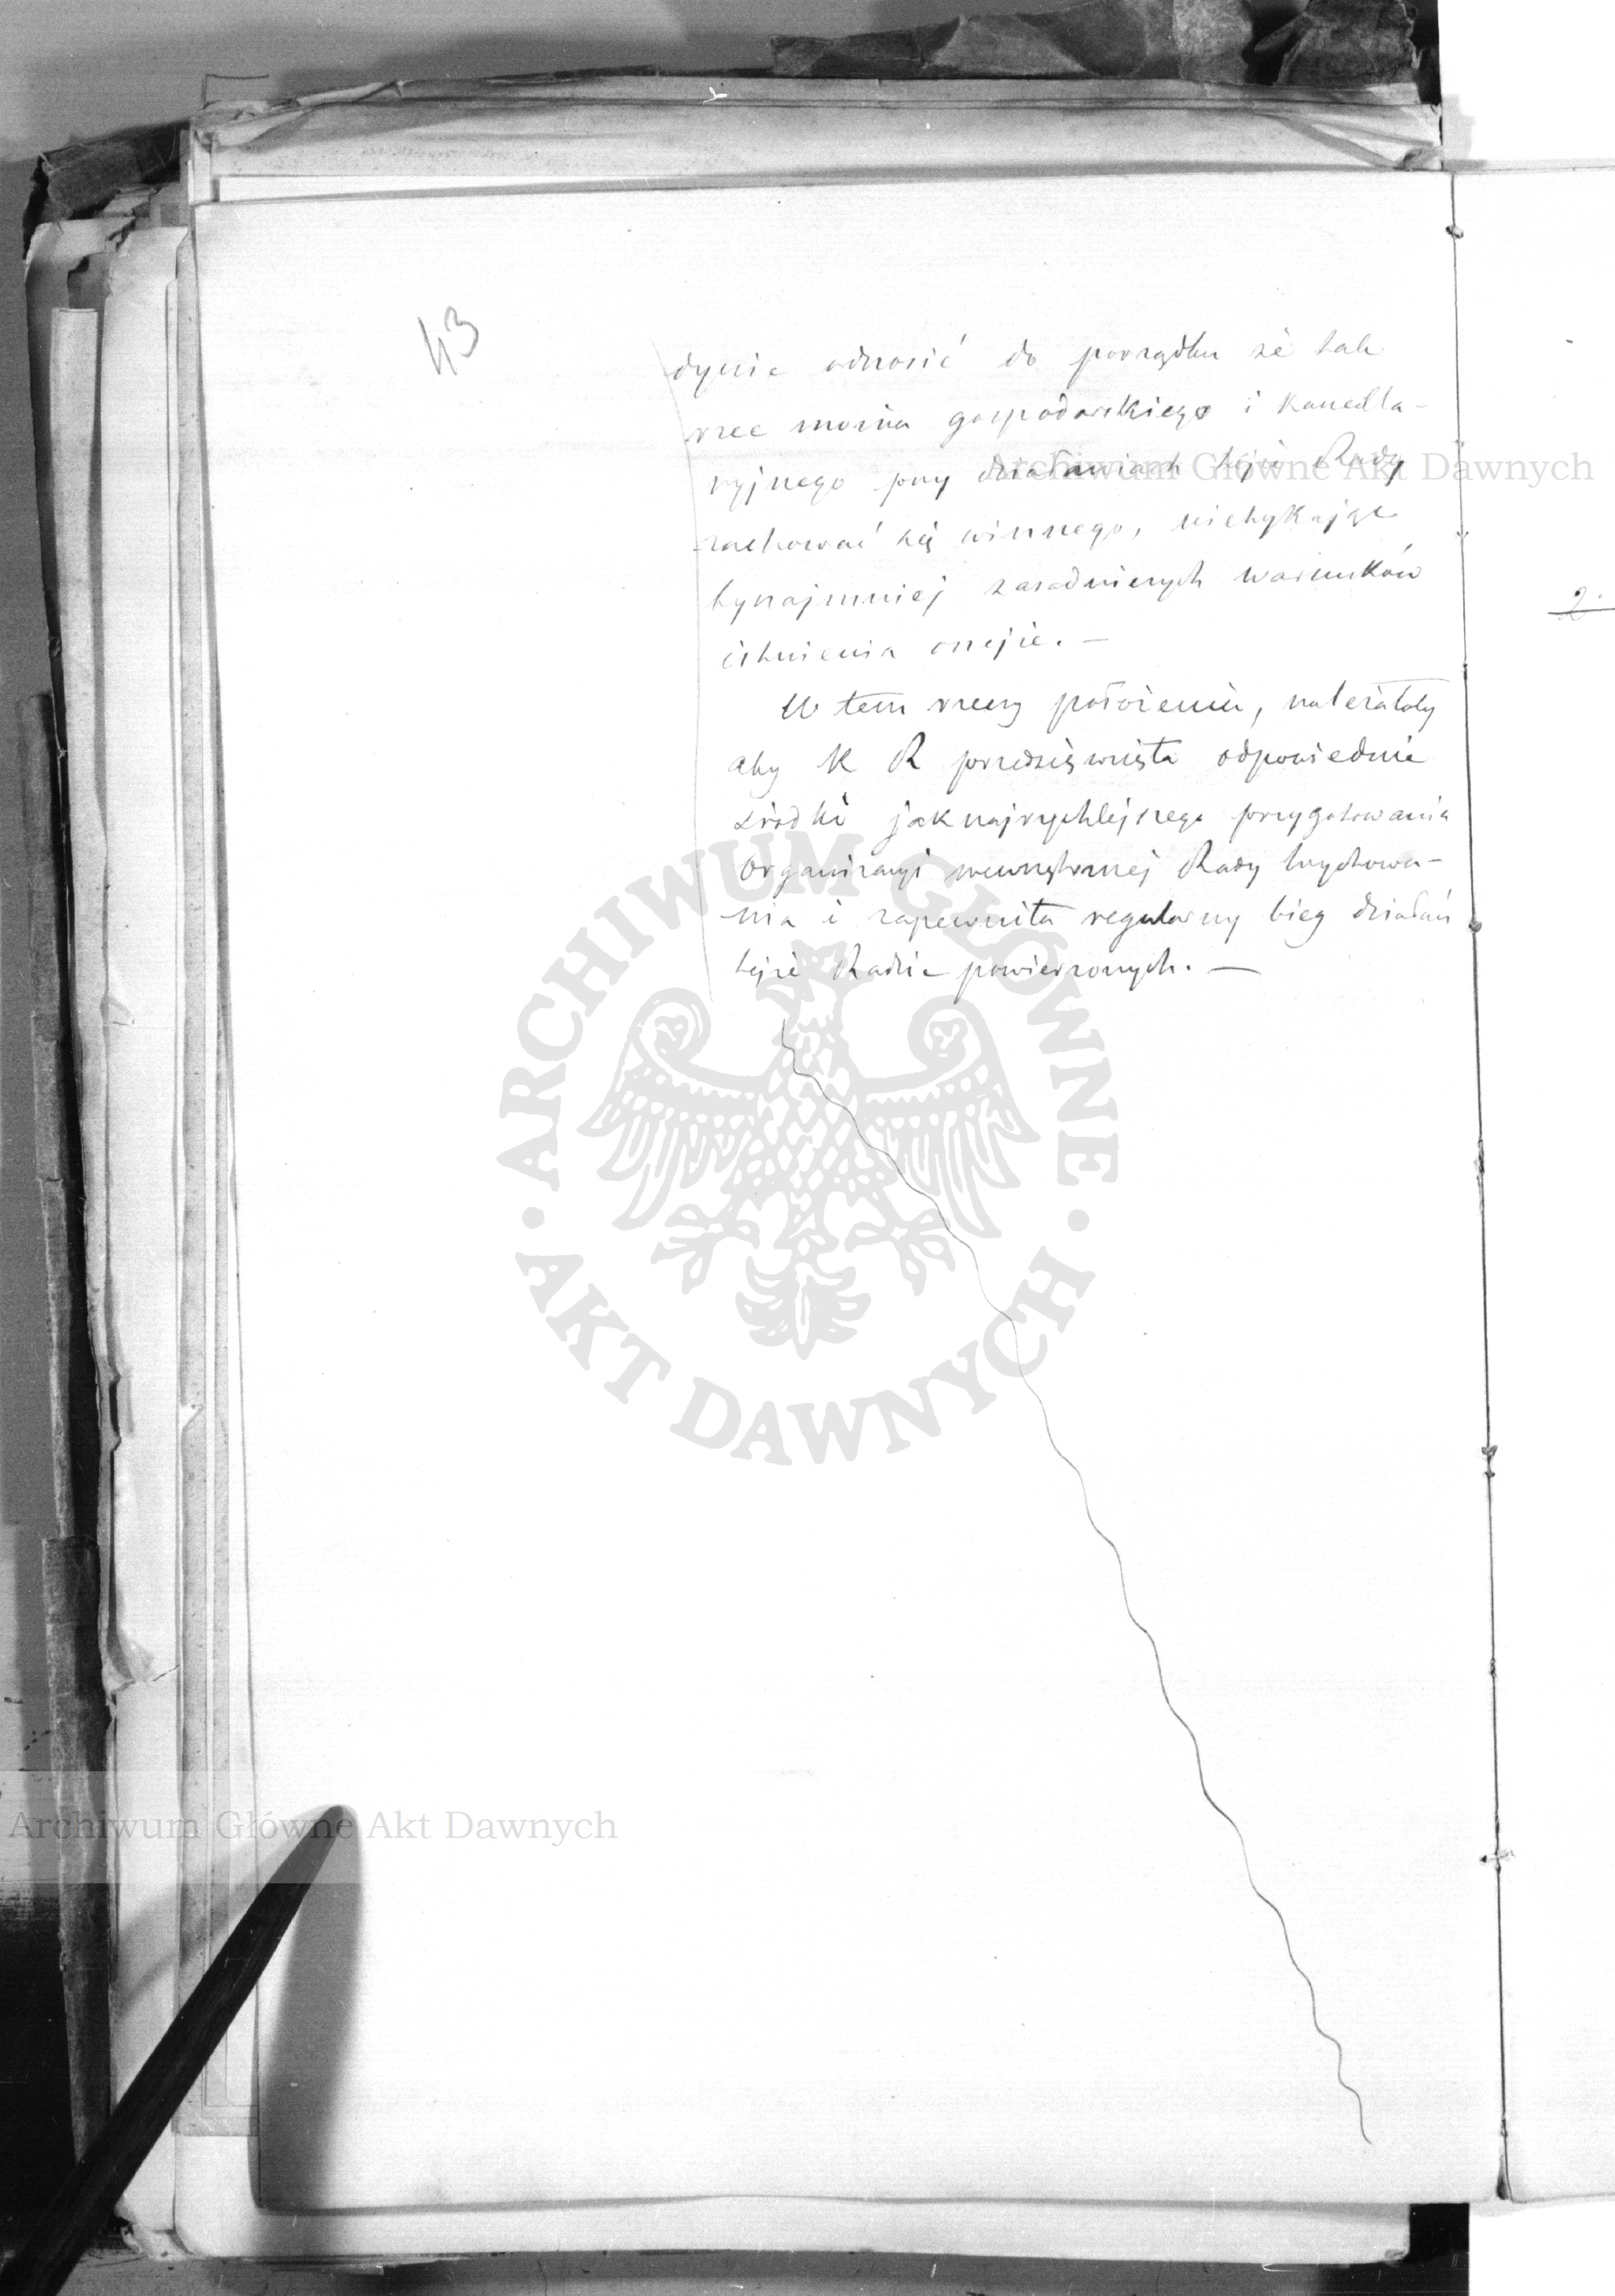 43
dynie odnosić do porządku że tak
rzec można gospodarskiego i kancella-
ryjnego przy działaniach tejże Rady
zachować się winnego, nietykając
bynajmniej zasadniczych warunków
istnienia onejże. —
W tem rzeczy położeniu, należałoby
aby K R przedsięwzięła odpowiednie
środki jaknajrychlejszego przygotowania
Organizacyi wewnętrznej Rady Wychowa-
nia i zapewniła regularny bieg działań
tejże Radzie powierzonych. —
2.
Archiwum Główne Akt Dawnych
ARCHIWUM GŁÓWNE · AKT DAWNYCH ·
Archiwum Główne Akt Dawnych